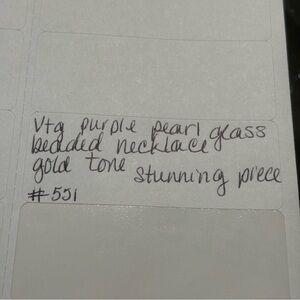 Vtg purple pearl glass
bedded necklace
gold tone stunning piece
#551